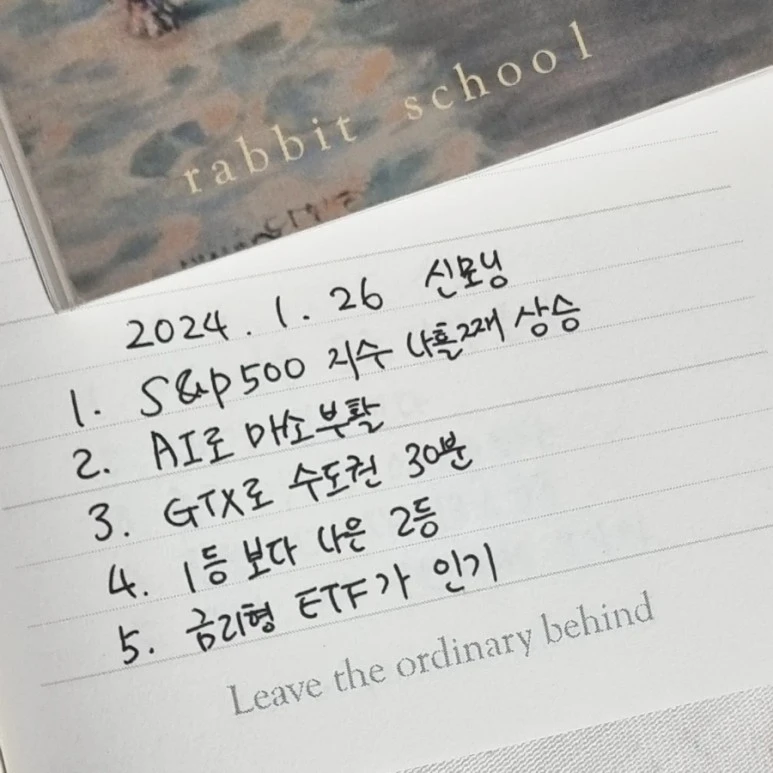 rabbit school
2024. 1. 26 신모닝
1. S&P500 지수 나흘째 상승
2. AI로 매소부활
3. GTX로 수도권 30분
4. 1등 보다 나은 2등
5. 금리형 ETF가 인기
Leave the ordinary behind